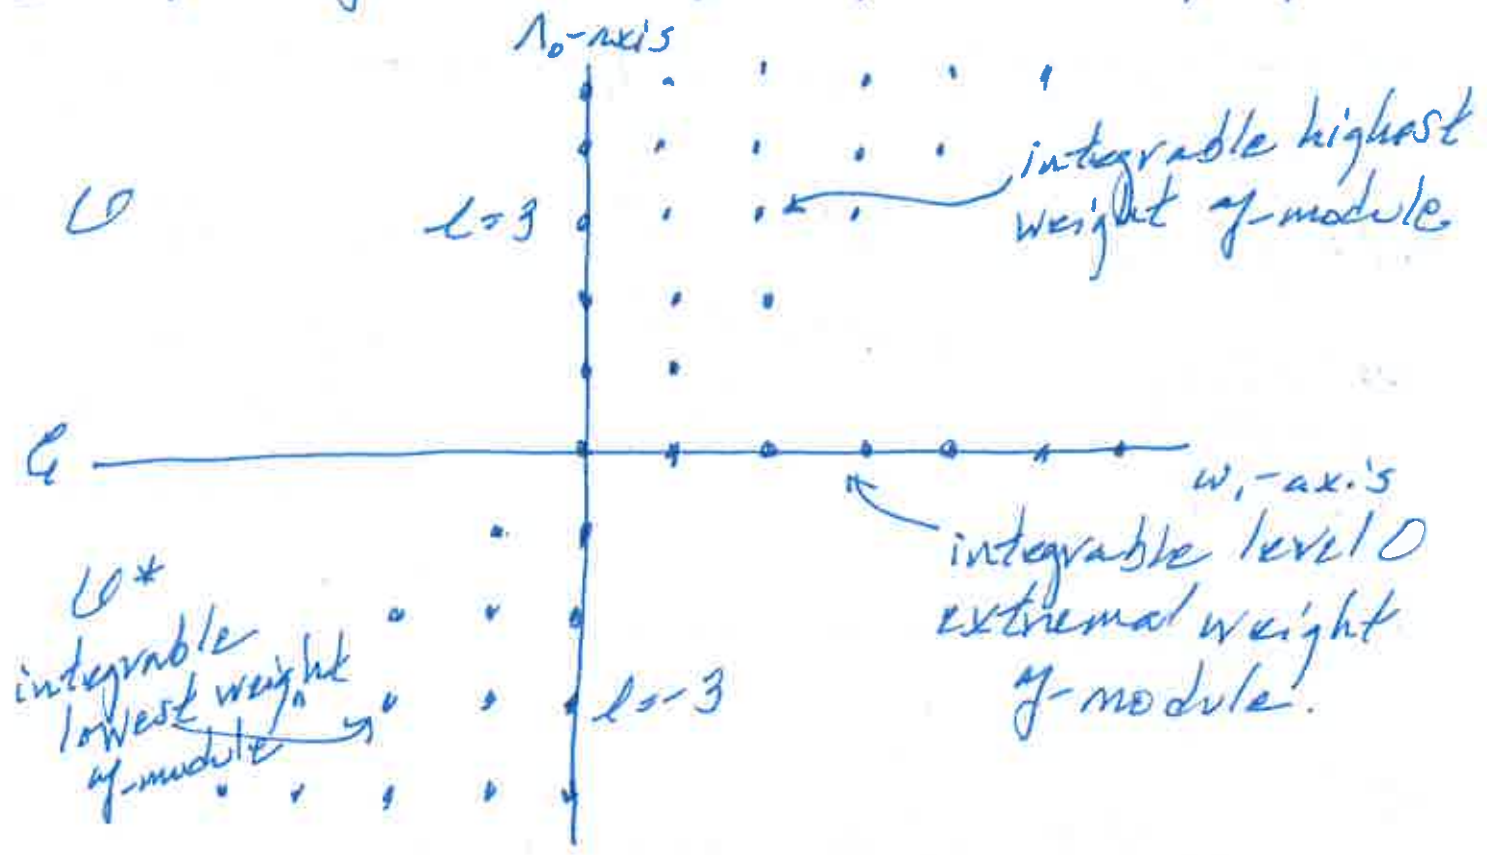 Λ₀-axis
integrable highest
weight 𝔤-module
l=3
ω₁-axis
integrable level 0
extremal weight
𝔤-module.
*
integrable
lowest weight
𝔤-module
l=-3